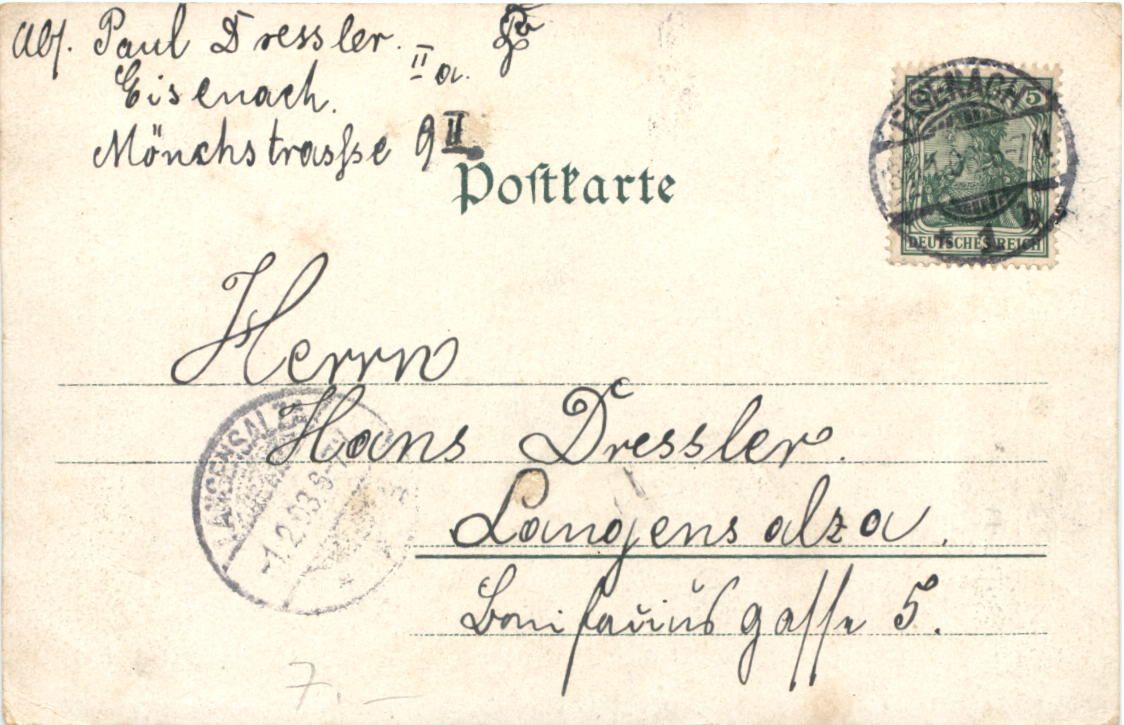 Abs. Paul Dressler.
IIa.
Eisenach.
Mönchstrasse 9 II
Postkarte
EISENACH
5
DEUTSCHES REICH
Herrn
Hans Dressler.
LANGENSALZA
1.2.03.
Langensalza.
Bonifaciusgasse 5.
7.-